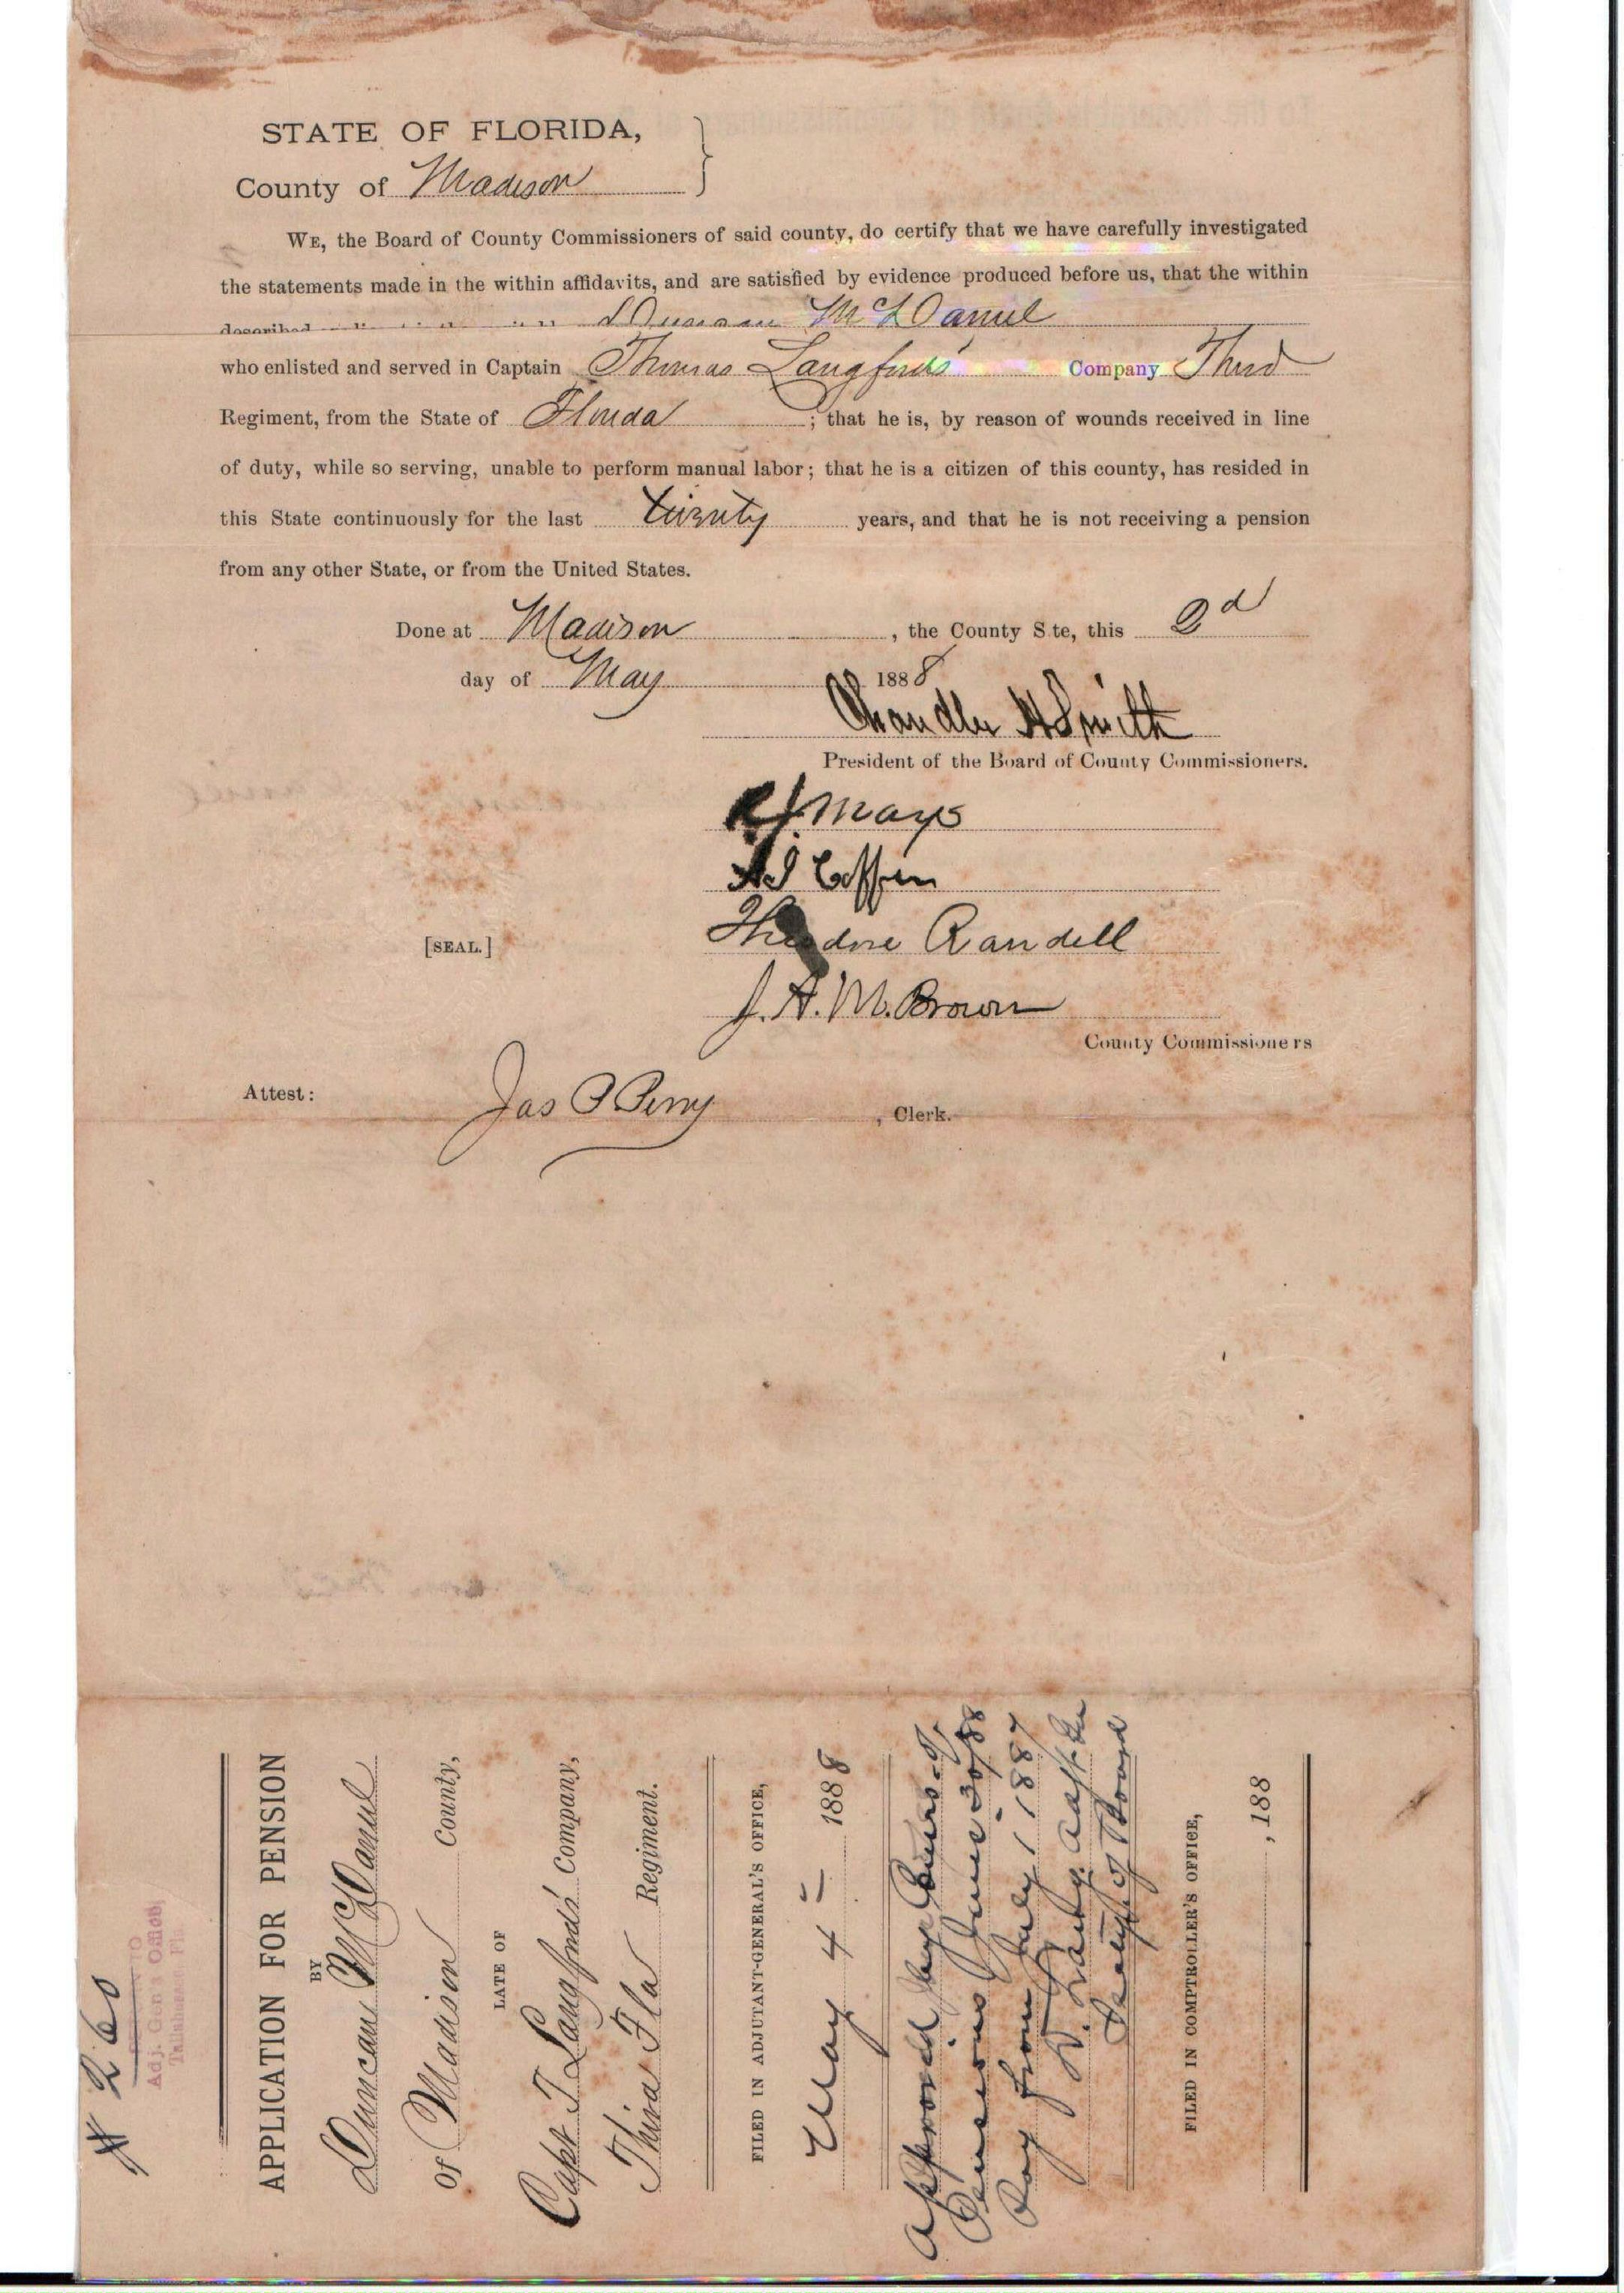 STATE OF FLORIDA,
County of Madison
WE, the Board of County Commissioners of said county, do certify that we have carefully investigated
the statements made in the within affidavits, and are satisfied by evidence produced before us, that the within
described Duncan McDaniel
who enlisted and served in Captain Thomas Langford's Company Third
Regiment, from the State of Florida ; that he is, by reason of wounds received in line
of duty, while so serving, unable to perform manual labor; that he is a citizen of this county, has resided in
this State continuously for the last twenty years, and that he is not receiving a pension
from any other State, or from the United States.
Done at Madison , the County S te, this 2d
day of May 1888
Chandler H Smith
President of the Board of County Commissioners.
R J Mays
Coffin
Theodore Randell
[SEAL.]
J. A. M. Brown
County Commissioners
Attest: Jas P Perry , Clerk.
# 260
TO
Adj. Gen's Office,
Tallahassee, Fla.
APPLICATION FOR PENSION
BY
Duncan McDaniel
Of Madison County,
LATE OF
Capt T Langford's Company,
Third Fla Regiment.
FILED IN ADJUTANT-GENERAL'S OFFICE,
May 4 - 1888
Approved by
Pensions June 30/88
Pay from July 1 1887
D. Lang.
Secty of Board
FILED IN COMPTROLLER'S OFFICE,
, 188